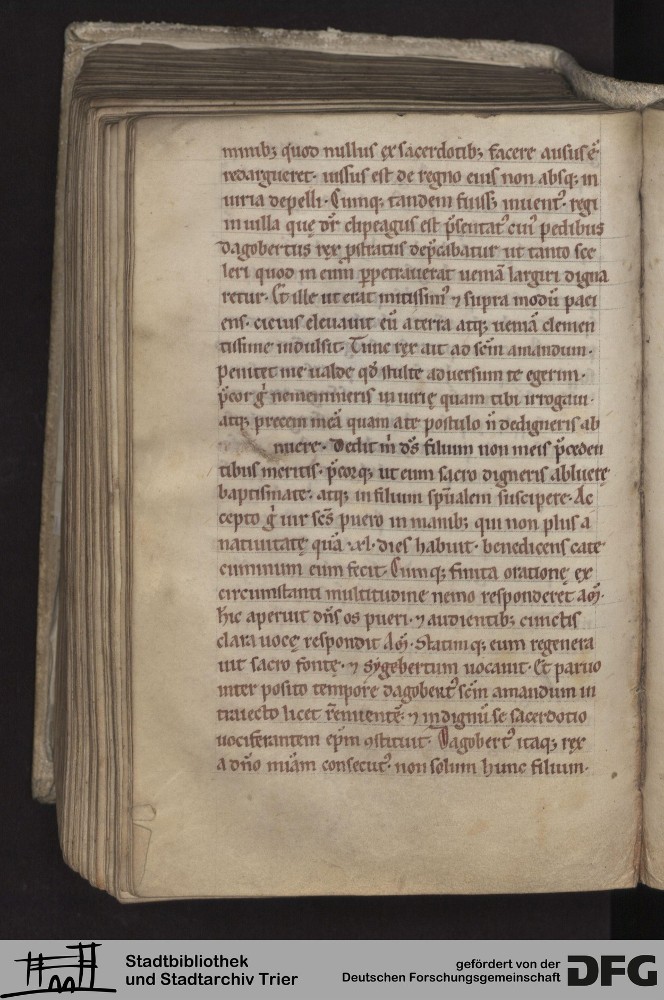 minib; quod nullus ex sacerdotib; facere ausus ē
redargueret. iussus est de regno eius non absq; in
iuria depelli. Cumq; tandem fuiss; inuent᷒. regi
in uilla quę dr̄ clipeagus est p̄sentat᷒ cui᷒ pedibus
dagobertus rex ꝓstratus dep̄cabatur ut tanto sce
leri quod in eum ꝑpetrauerat ueniā largiri digna
retur. Et ille ut erat mitissim᷒ ⁊ supra modū paci
ens. cicius eleuauit eū a terra atq; ueniā clemen
tissime indulsit. Tunc rex ait ad sc̄m amandum.
Penitet me ualde qd̄ stulte aduersum te egerim.
p̄cor gͦ ne memineris iniurię quam tibi irrogaui.
atq; precem meā quam a te postulo n̄ dedigneris ab
nuere. Dedit m̄ ds̄ filium non meis p̄ceden
tibus meritis. p̄corq; ut eum sacro digneris abluere
baptismate. atq; in filium spūalem suscipere. Ac
cepto gͦ uir scs̄ puero in manib; qui non plus a
natiuitate quā .xl. dies habuit. benedicens cate
cuminum eum fecit. Cumq; finita oratione ex
circumstanti multitudine nemo responderet am̄.
hic aperuit dn̄s os pueri. ⁊ audientib; cunctis
clara uoce respondit am̄. Statimq; eum regenera
uit sacro fonte. ⁊ sygebertum uocauit. Et paruo
inter posito tempore dagobert᷒ sc̄m amandum in
traiecto licet r̄enitente. ⁊ indignū se sacerdotio
uociferantem ep̄m ꝯstituit. Dagobert᷒ itaq; rex
a dn̄o miām consecut᷒. non solum hunc filium.
Stadtbibliothek
und Stadtarchiv Trier
gefördert von der
Deutschen Forschungsgemeinschaft
DFG